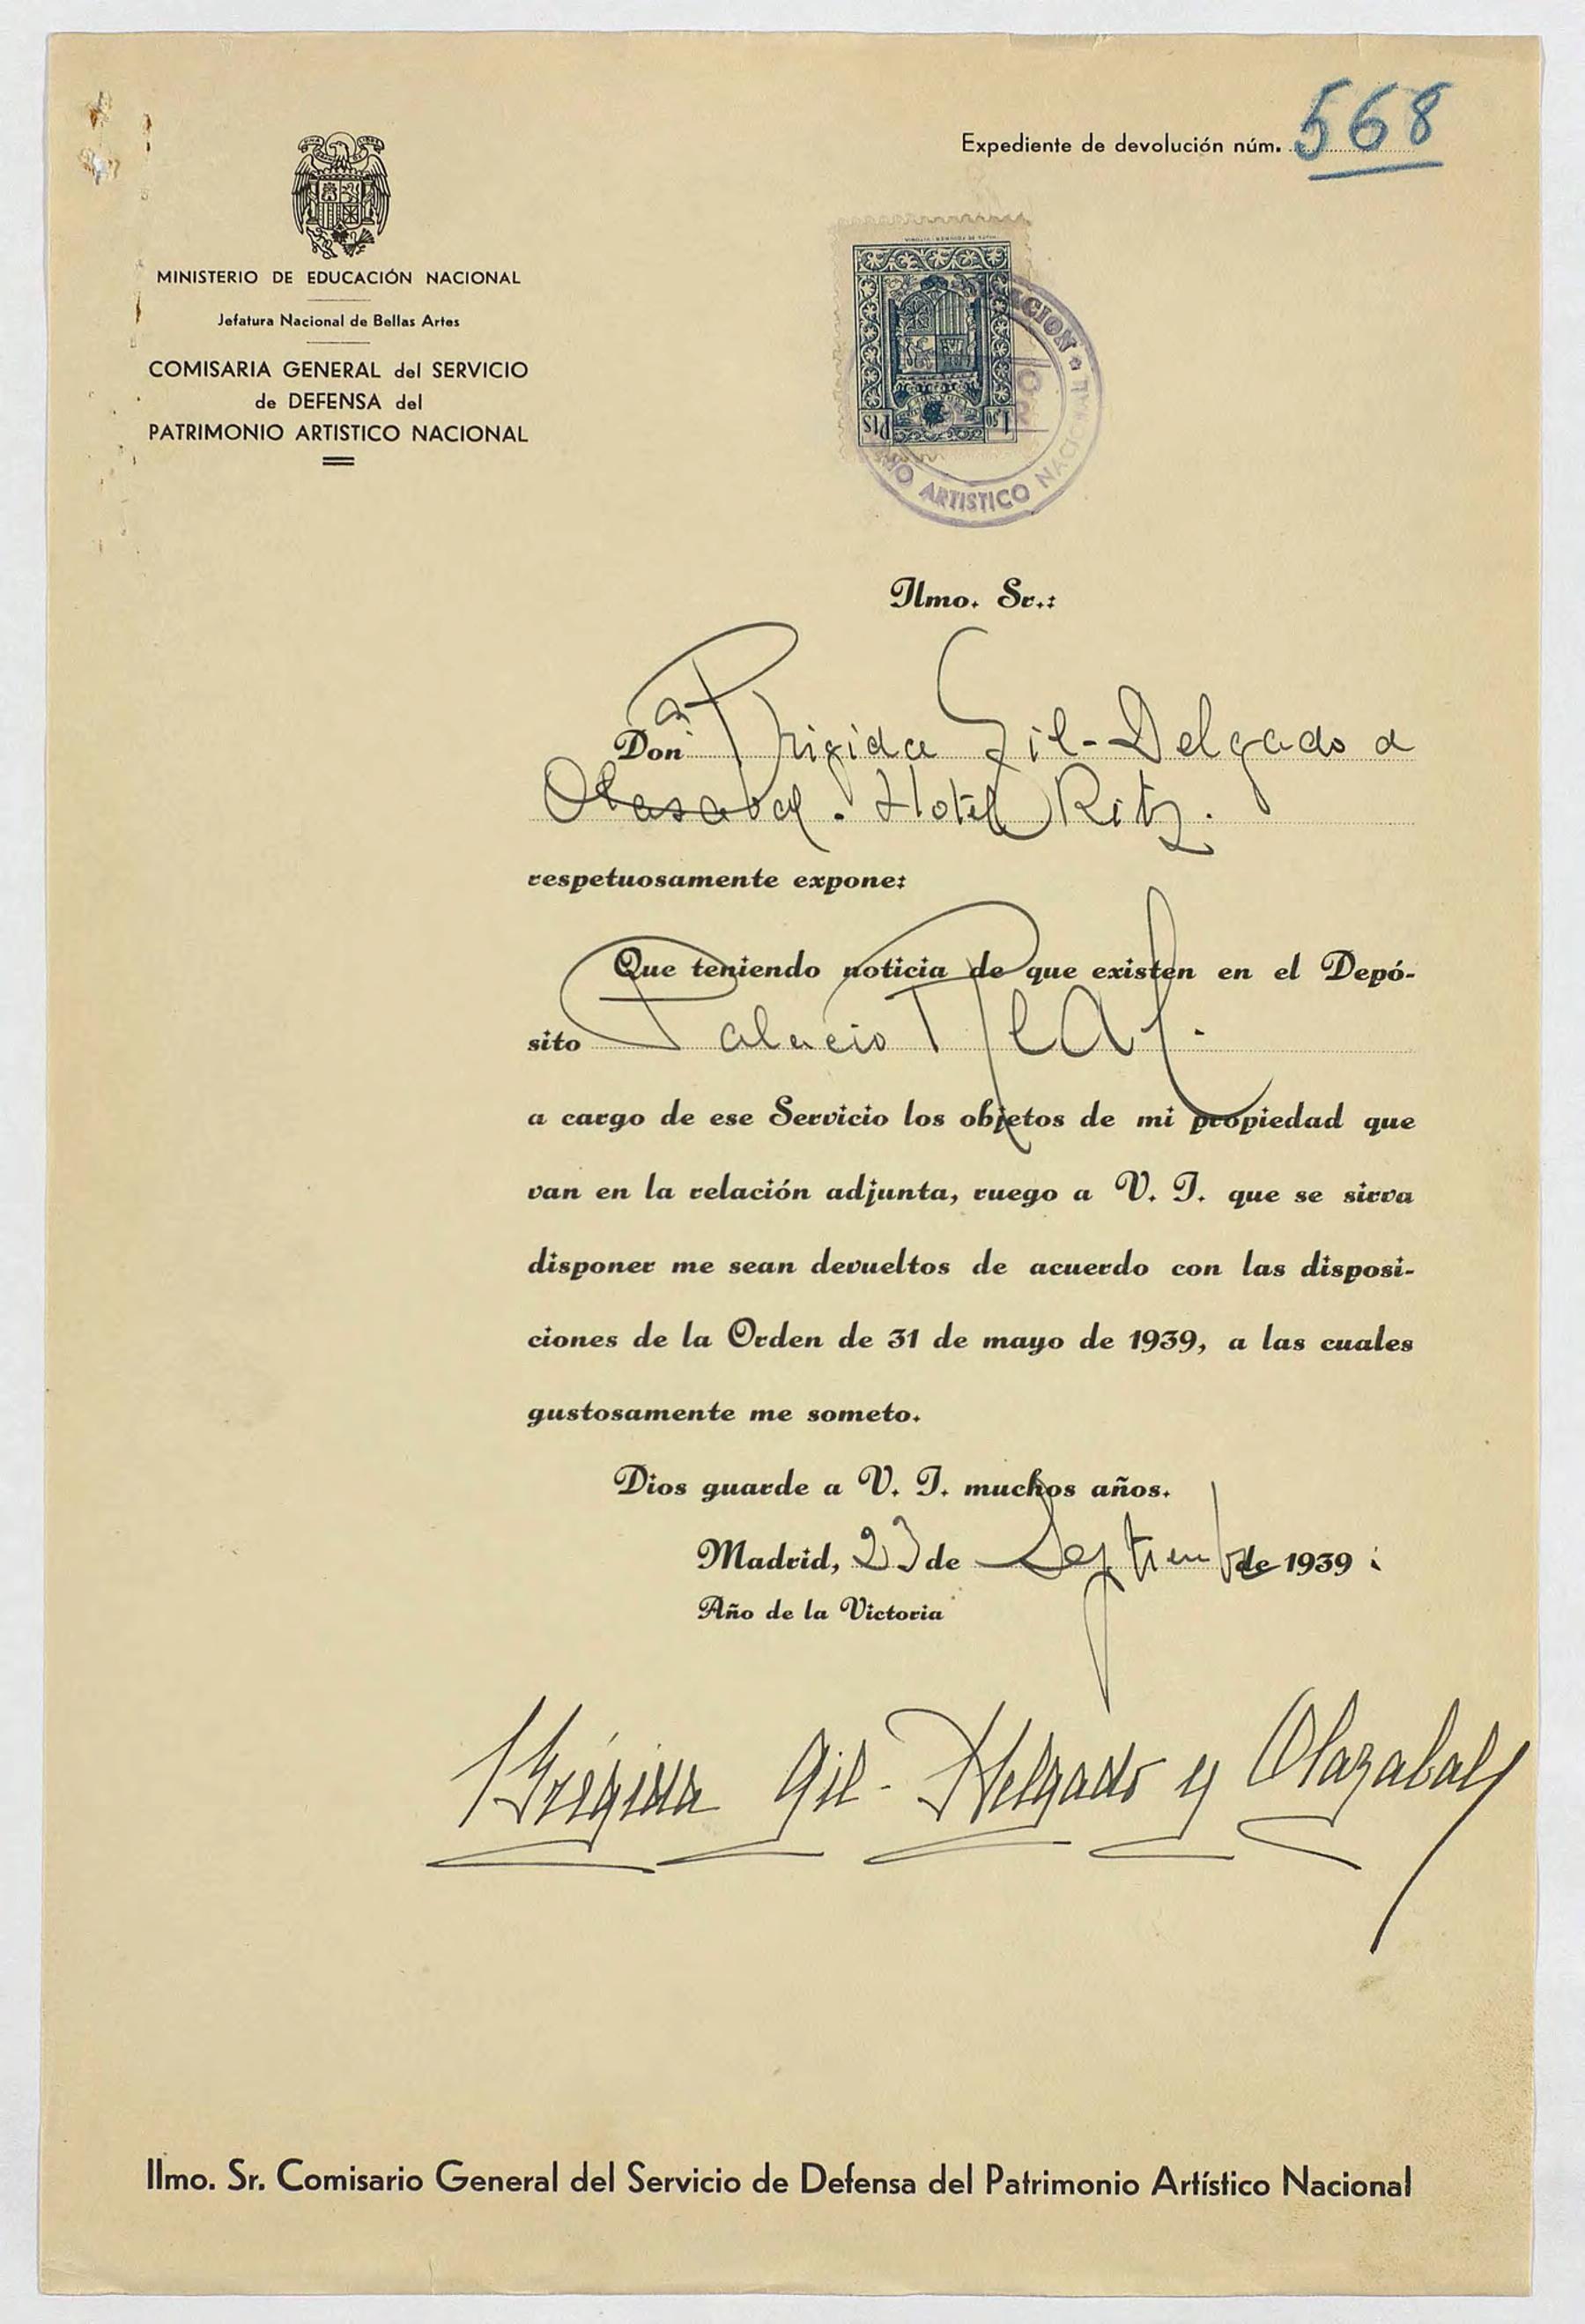 Expediente de devolución núm. 568
MINISTERIO DE EDUCACIÓN NACIONAL
Jefatura Nacional de Bellas Artes
COMISARIA GENERAL del SERVICIO
de DEFENSA del
PATRIMONIO ARTISTICO NACIONAL
Pts 1,50
CION * 
ARTISTICO NACIONAL
Ilmo. Sr.:
Donª Brigida Gil-Delgado
Olasabal. Hotel Ritz.
respetuosamente expone:
Que teniendo noticia de que existen en el Depó-
sito Palacio Real.
a cargo de ese Servicio los objetos de mi propiedad que
van en la relación adjunta, ruego a V. I. que se sirva
disponer me sean devueltos de acuerdo con las disposi-
ciones de la Orden de 31 de mayo de 1939, a las cuales
gustosamente me someto.
Dios guarde a V. I. muchos años.
Madrid, 23 de Septiemb de 1939
Año de la Victoria
Brígida Gil-Delgado y Olazabal
Ilmo. Sr. Comisario General del Servicio de Defensa del Patrimonio Artístico Nacional